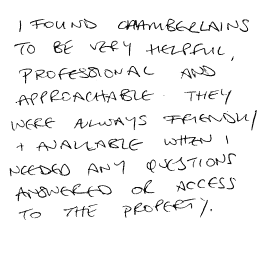 I FOUND CHAMBERLAINS
TO BE VERY HELPFUL,
PROFESSIONAL AND
APPROACHABLE. THEY
WERE ALWAYS FRIENDLY
+ AVAILABLE WHEN I
NEEDED ANY QUESTIONS
ANSWERED OR ACCESS
TO THE PROPERTY.